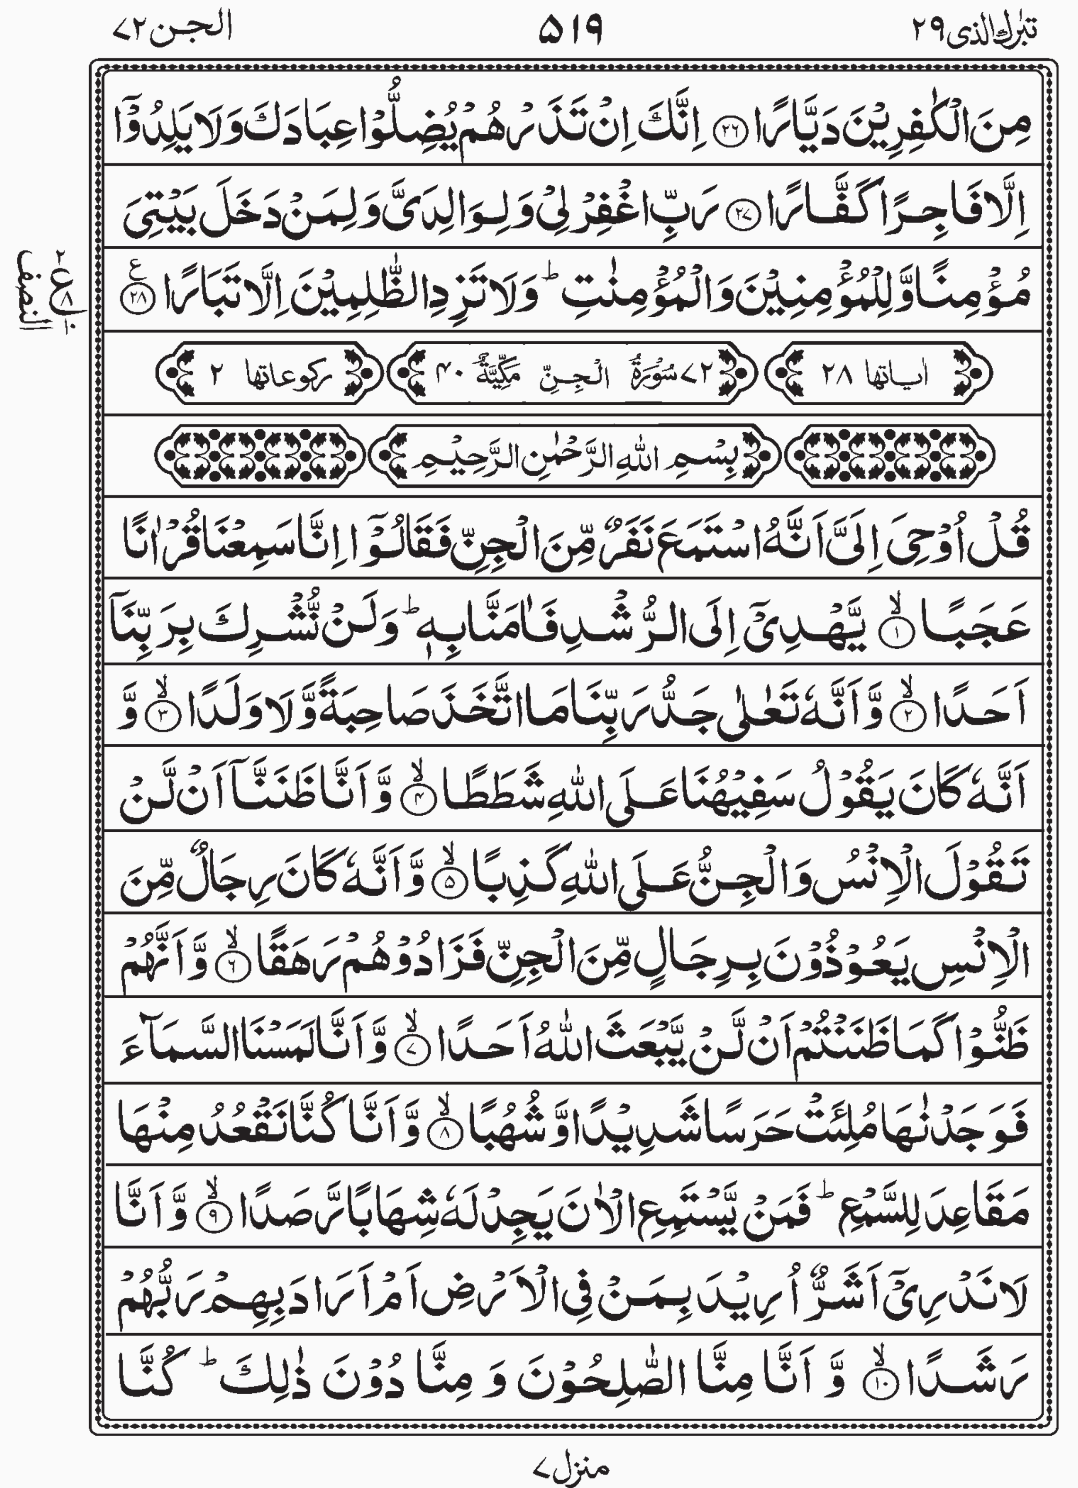 تبٰرك الذی ۲۹ ۵۱۹ الجن ۷۲
مِنَ الْكٰفِرِيْنَ دَيَّارًا ۲۶ اِنَّكَ اِنْ تَذَرْهُمْ يُضِلُّوْا عِبَادَكَ وَلَا يَلِدُوْۤا
اِلَّا فَاجِرًا كَفَّارًا ۲۷ رَبِّ اغْفِرْ لِیْ وَلِوَالِدَیَّ وَلِمَنْ دَخَلَ بَيْتِیَ
مُؤْمِنًا وَّلِلْمُؤْمِنِيْنَ وَالْمُؤْمِنٰتِ ؕ وَلَا تَزِدِ الظّٰلِمِيْنَ اِلَّا تَبَارًا ۲۸ ع
۲ ع ۸ ۱۰
النصف
اٰیاتها ۲۸ ۷۲ سُوْرَةُ الْجِنِّ مَكِّيَّةٌ ۴۰ ركوعاتها ۲
بِسْمِ اللّٰهِ الرَّحْمٰنِ الرَّحِيْمِ
قُلْ اُوْحِیَ اِلَیَّ اَنَّهُ اسْتَمَعَ نَفَرٌ مِّنَ الْجِنِّ فَقَالُوْۤا اِنَّا سَمِعْنَا قُرْاٰنًا
عَجَبًا ۙ۱ يَّهْدِیْۤ اِلَی الرُّشْدِ فَاٰمَنَّا بِهٖ ؕ وَلَنْ نُّشْرِكَ بِرَبِّنَاۤ
اَحَدًا ۙ۲ وَّاَنَّهٗ تَعٰلٰی جَدُّ رَبِّنَا مَا اتَّخَذَ صَاحِبَةً وَّلَا وَلَدًا ۙ۳ وَّ
اَنَّهٗ كَانَ يَقُوْلُ سَفِيْهُنَا عَلَی اللّٰهِ شَطَطًا ۙ۴ وَّاَنَّا ظَنَنَّاۤ اَنْ لَّنْ
تَقُوْلَ الْاِنْسُ وَالْجِنُّ عَلَی اللّٰهِ كَذِبًا ۙ۵ وَّاَنَّهٗ كَانَ رِجَالٌ مِّنَ
الْاِنْسِ يَعُوْذُوْنَ بِرِجَالٍ مِّنَ الْجِنِّ فَزَادُوْهُمْ رَهَقًا ۙ۶ وَّاَنَّهُمْ
ظَنُّوْا كَمَا ظَنَنْتُمْ اَنْ لَّنْ يَّبْعَثَ اللّٰهُ اَحَدًا ۙ۷ وَّاَنَّا لَمَسْنَا السَّمَآءَ
فَوَجَدْنٰهَا مُلِئَتْ حَرَسًا شَدِيْدًا وَّشُهُبًا ۙ۸ وَّاَنَّا كُنَّا نَقْعُدُ مِنْهَا
مَقَاعِدَ لِلسَّمْعِ ؕ فَمَنْ يَّسْتَمِعِ الْاٰنَ يَجِدْ لَهٗ شِهَابًا رَّصَدًا ۙ۹ وَّاَنَّا
لَا نَدْرِیْۤ اَشَرٌّ اُرِيْدَ بِمَنْ فِی الْاَرْضِ اَمْ اَرَادَ بِهِمْ رَبُّهُمْ
رَشَدًا ۙ۱۰ وَّ اَنَّا مِنَّا الصّٰلِحُوْنَ وَ مِنَّا دُوْنَ ذٰلِكَ ؕ كُنَّا
منزل ۷